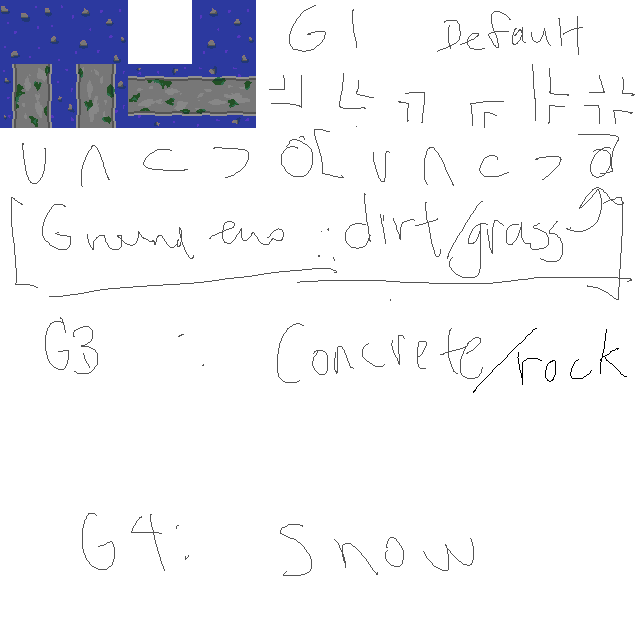 G1 Default
U ∩ ⊂ > O [ U ∩ ⊂ >
Ground : dirt/grass
G3 : Concrete/rock
G4: Snow